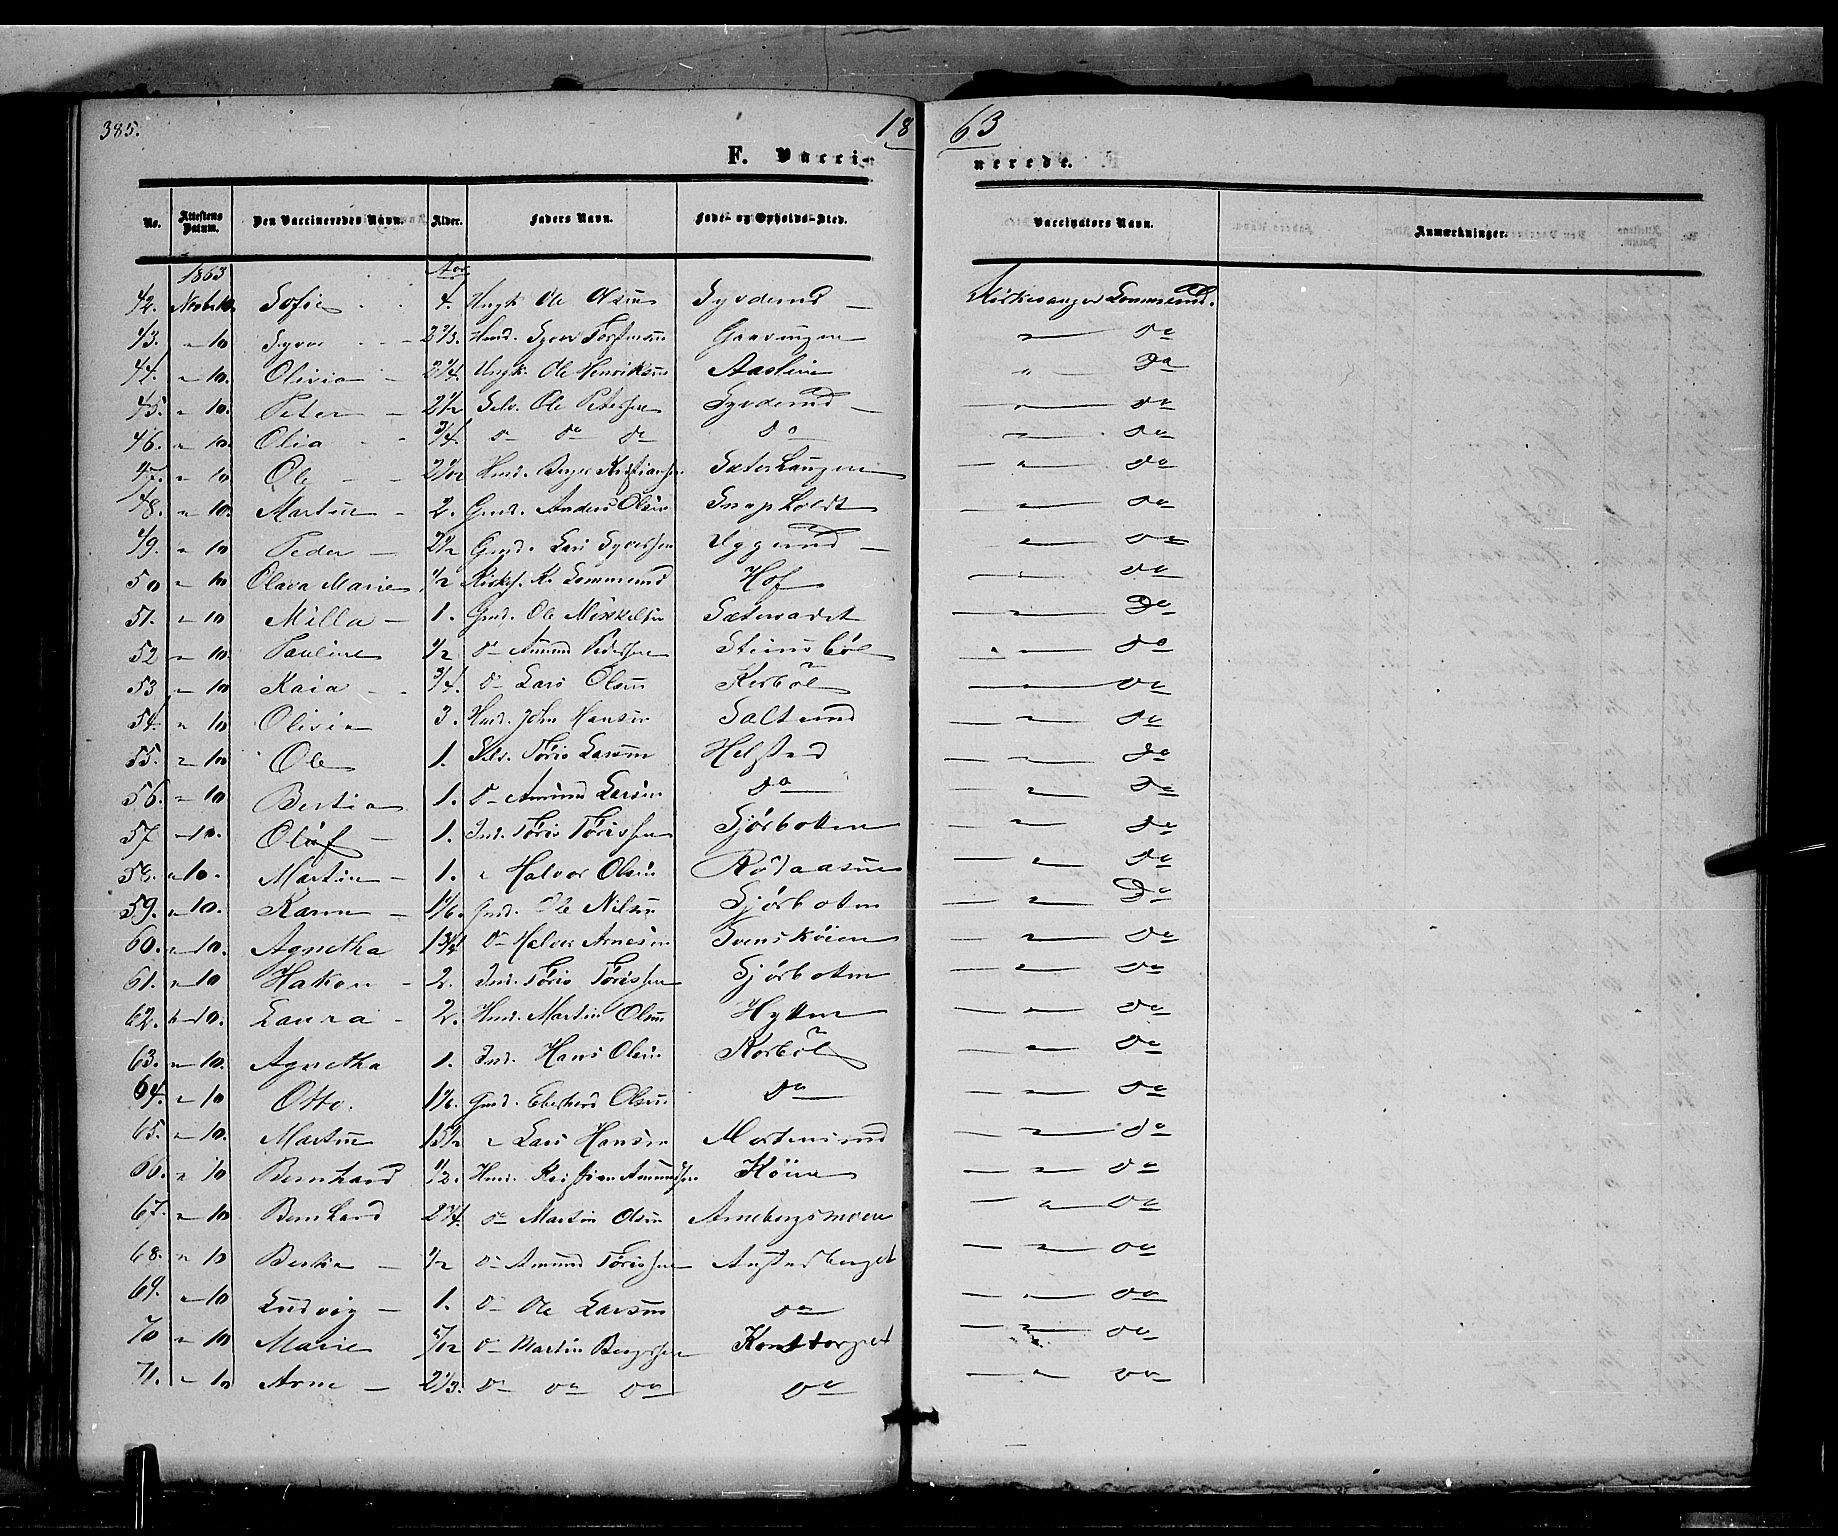 385.
18 63
F. Vaccinerede.
No. Attestens Datum. Den Vaccineredes Navn. Alder. Faders Navn. Føde- og Opholds-Sted. Vaccinators Navn. Anmærkninger.
1863 Aar
42. Sofie 4. Ungk. Ole Olsen Kirkesanger
43. " 10 Syver 2 2/3. Hmd. Syver " do
44. " 10. Olivia 2 1/4. Ungk. Ole Henriksen Aaslien " Do
45. " 10. Peter 2 1/2 Selv. Ole Petersen " do
46. " 10. Olia 3/4. do do do do " do
47. " 10 Ole Hmd. Kristiansen " do
48. " 10. Martin 2. Gmd. Anders Olsen Snapholdt " do
49. " 10 Peder 2 1/2 Gmd. Lars Syversen Uggerud " do
50 " 10 Olava Marie 1/2 Hof " do
51. " 10 Milla 1. Gmd. Ole Mikkelsen " Do
52 " 10. Pauline 1/2 do Amund Pedersen Steinsböl " do
53 " 10 Kaia 3/4. do Lars Olsen Kirböl " do
54. " 10 Olivia 3. Hmd. John Hansen Saltrud " do
55. " 10 Ole 1. Selv. Töris Larsen Helstad " do
56. " 10 Bertia 1. do Amund Larsen do " do
57. " 10. Oluf 1. Ind. Töris Törissen Sjörbotten " do
58. " 10. Martin 1. " Halvor Olsen Rödaasen " do
59. " 10. Karen 1 1/6. Gmd. Ole Nilsen Sjörbotten " Do
60. " 10. Agnetha 1 3/4 do Halvor Arnesen Svensköien " do
61. " 10 Hakon 2. Ind. Töris Törissen Sjörbotten " do
62. " 10. Laura 2. Hmd. Martin Olsen Hytten " do
63. " 10. Agnetha 1. Ind. Hans Olsen Korböl " do
64. " 10 Otto. 1 1/6. Gmd. Eberhard Olsen do " do
65. " 10. Martin " Lars Hansen Mortensrud " do
66. " 10 Bernhard 1/2. Hmd. Kristian Amundsen Köien " do
67. " 10 Bernhard 2 3/4. do Martin Olsen Arnebergsmoen " do
68. " 10 Bertha 1/2 do Amund Törissen Austadberget " do
69. " 10 Ludvig 1. do Ole Larsen do " do
70 " 10 Marie 5/12 do Martin Bergersen " do
71. " 10 Arne 2 1/3. do do do do " do